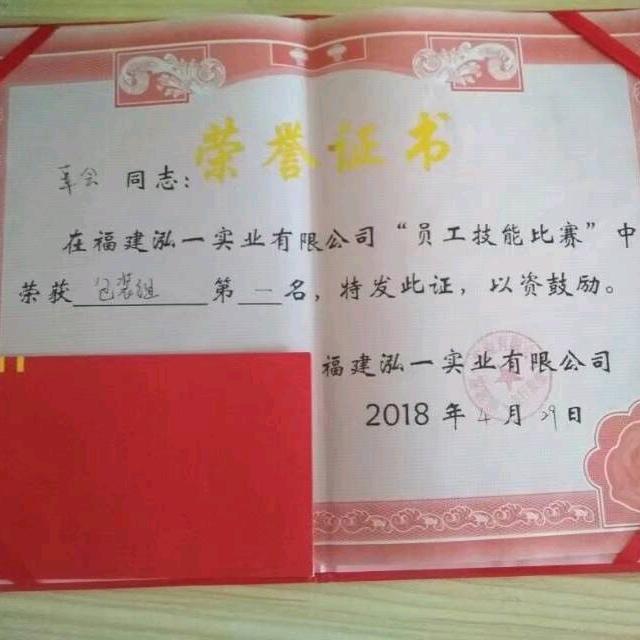 荣誉证书
同志：
在福建泓一实业有限公司“员工技能比赛”中
荣获包装组第一名，特发此证，以资鼓励。
福建泓一实业有限公司
2018年4月29日